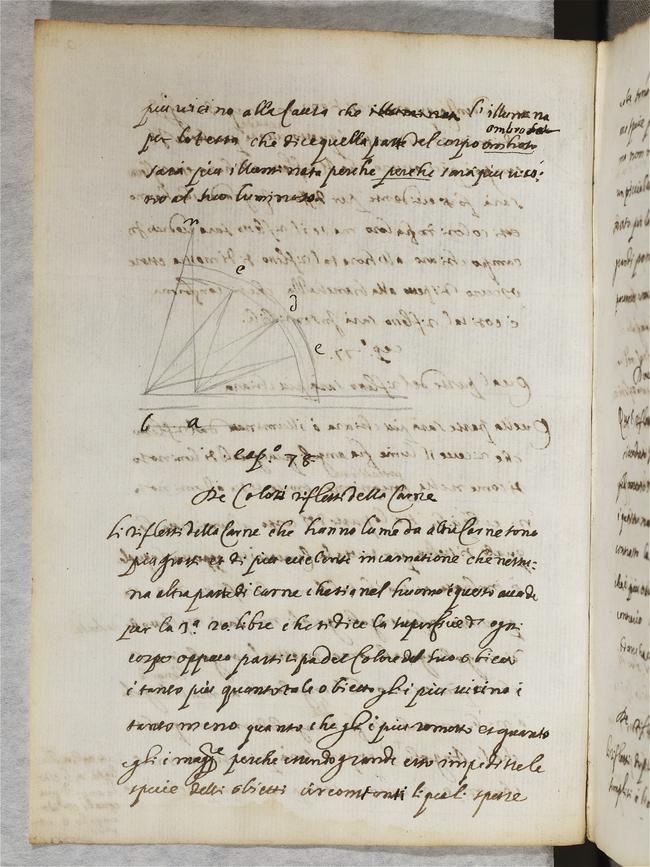 piu vicino alla Causa che illuminan l'illumina
per la terza che dice quella parte del corpo ombroso
ombroso
sarà piu illuminata perche perche sarà piu vici:
no al suo luminoso
n
c
d
e
b a
Cap.º 78.
De Colori riflessi della Carne
Li riflessi della Carne che hanno lume da altra Carne sono
piu rossi et di piu eccelente incarnatione che nessu:
na altra parte di carne che sia nel huomo e questo acade
per la 3.ª 2º. libro che si dice la superfice d' ogni
corpo oppaco participa del Colore del suo obietto
e tanto piu quanto tale obietto gli è piu vicino e
tanto meno quanto che gli è piu remotto et quanto
egli è magg.re perche essendo grande esso impedisce le
specie delli obietti circonstanti li quali spesse